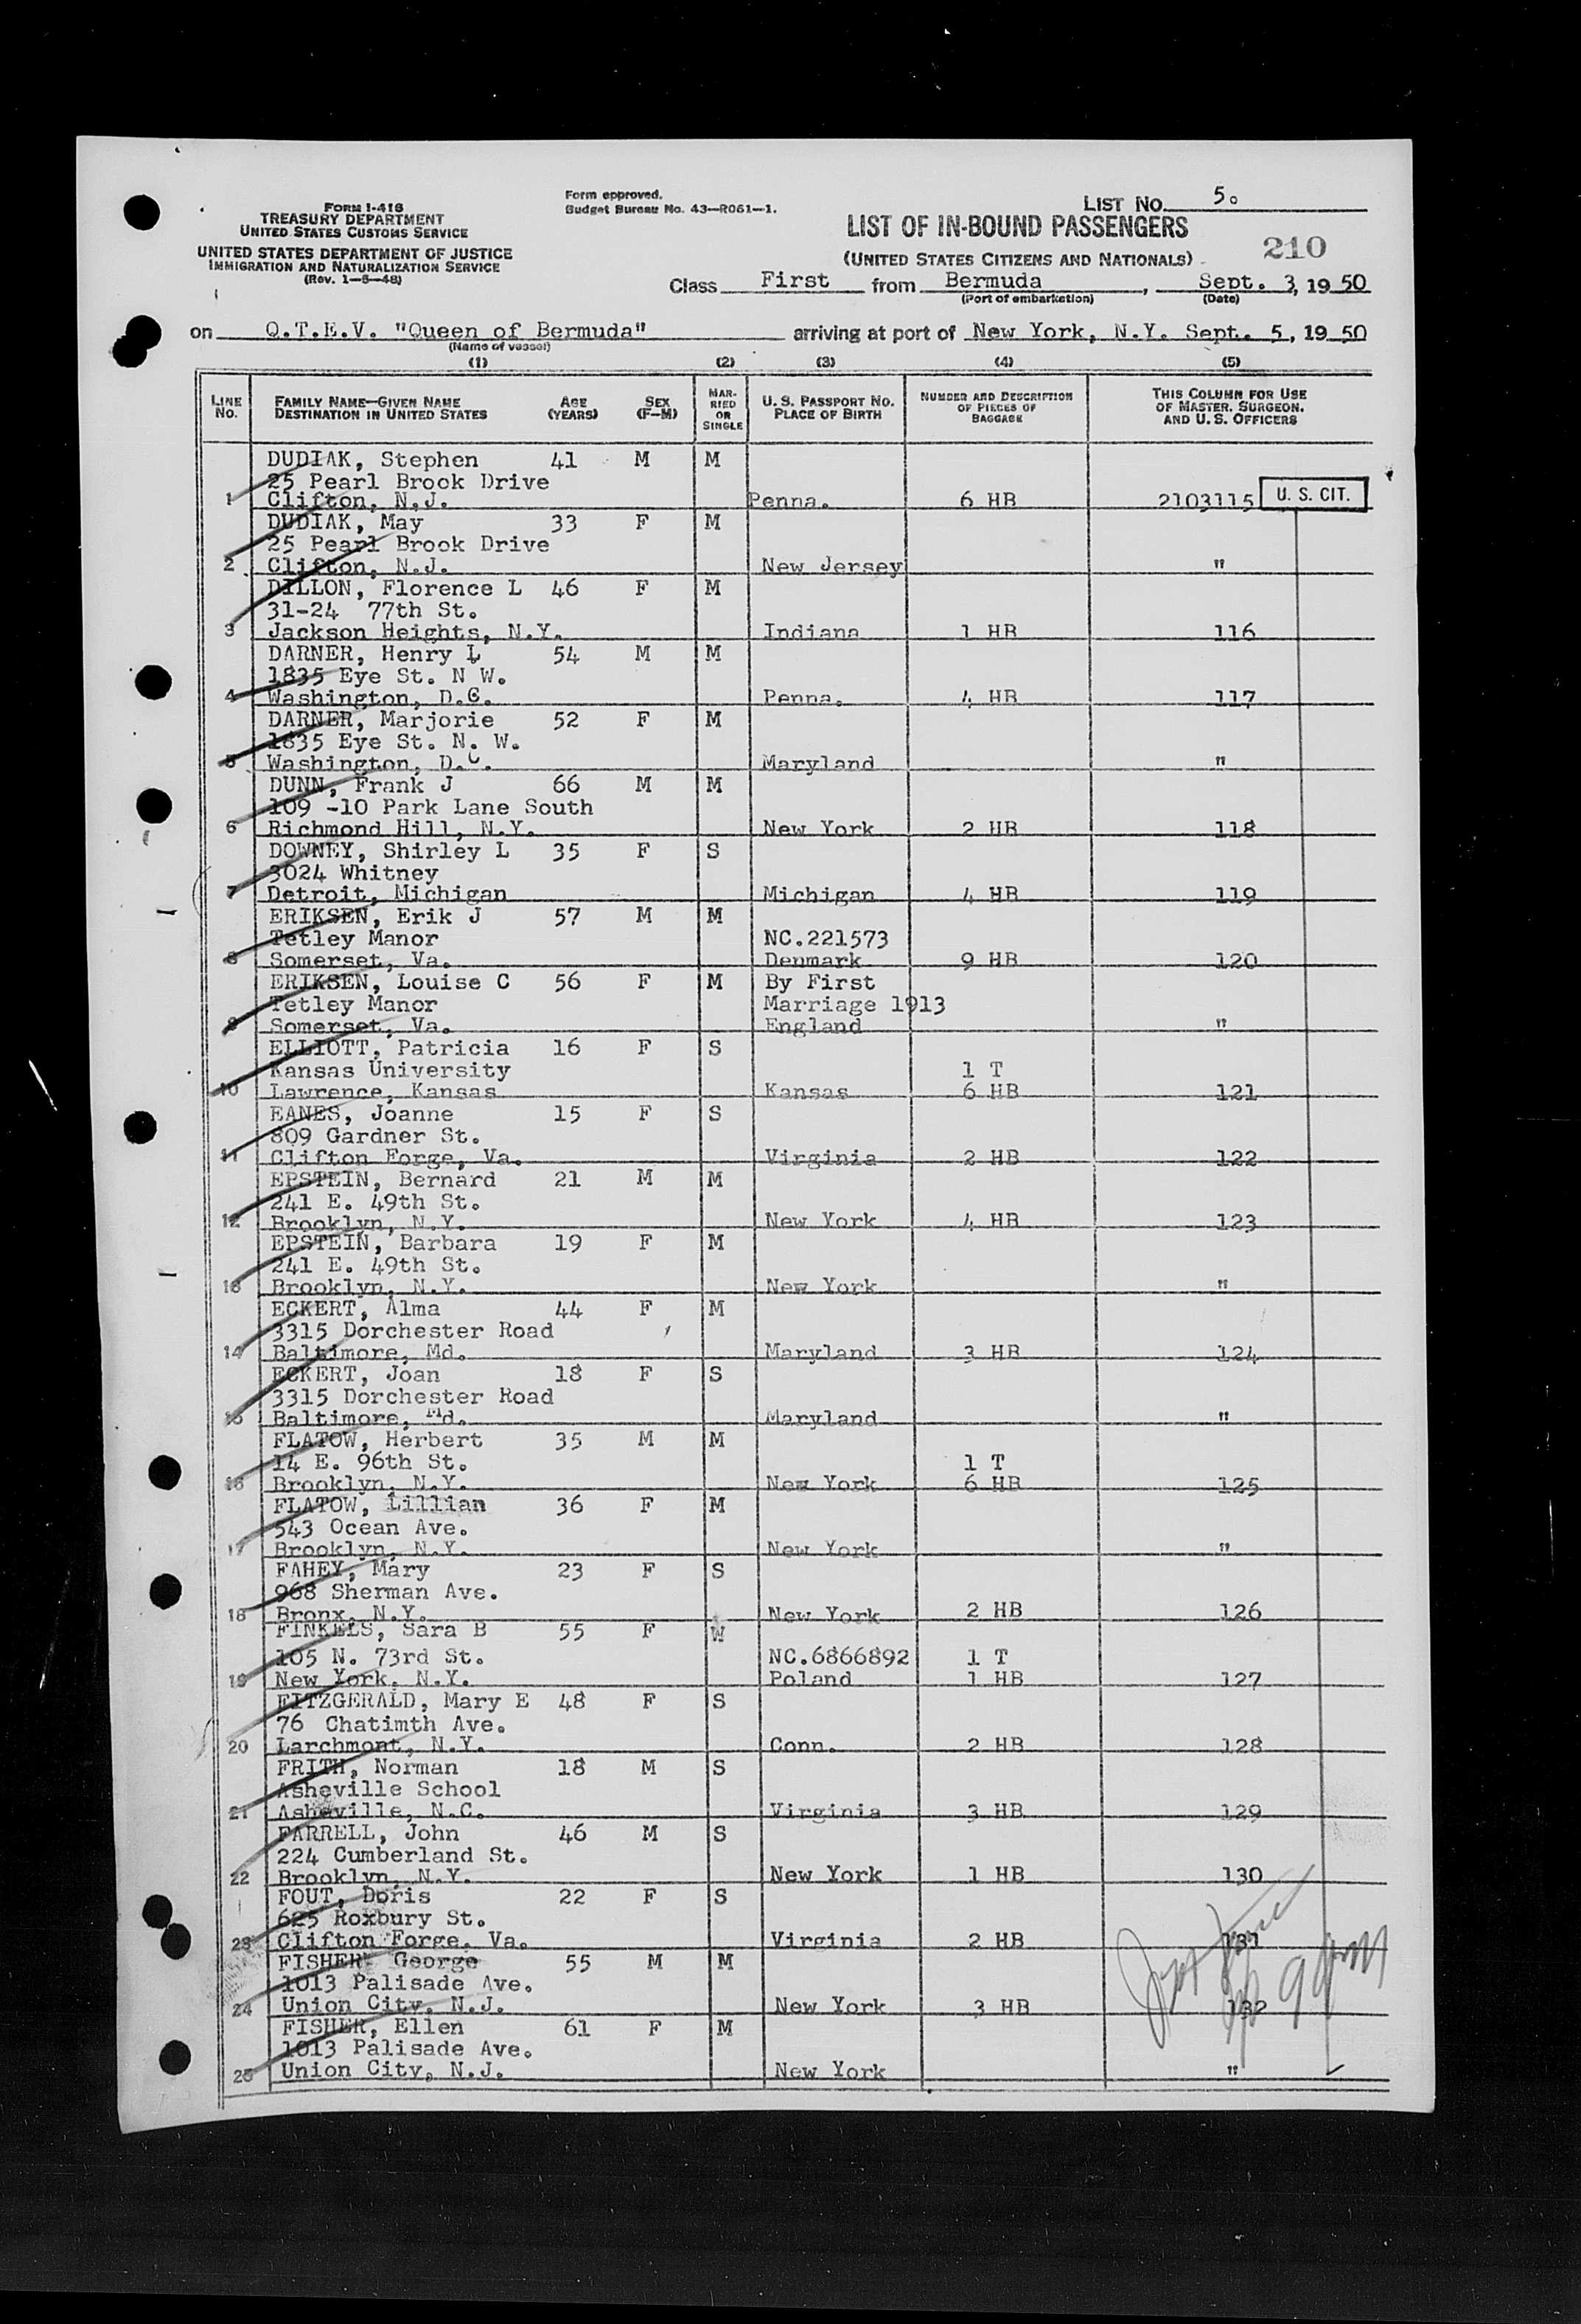 FORM I-416
TREASURY DEPARTMENT
UNITED STATES CUSTOMS SERVICE
UNITED STATES DEPARTMENT OF JUSTICE
IMMIGRATION AND NATURALIZATION SERVICE
(Rev. 1-5-48)
Form approved.
Budget Bureau No. 43-R061-1.
LIST No. 5.
LIST OF IN-BOUND PASSENGERS
(UNITED STATES CITIZENS AND NATIONALS)
210
Class First from Bermuda, Sept. 3, 19 50
(Port of embarkation) (Date)
on Q.T.E.V. "Queen of Bermuda" arriving at port of New York, N.Y. Sept. 5, 19 50
(Name of vessel)
(1) (2) (3) (4) (5)
LINE No. FAMILY NAME—GIVEN NAME DESTINATION IN UNITED STATES AGE (YEARS) SEX (F—M) MARRIED OR SINGLE U. S. PASSPORT No. PLACE OF BIRTH NUMBER AND DESCRIPTION OF PIECES OF BAGGAGE THIS COLUMN FOR USE OF MASTER, SURGEON, AND U. S. OFFICERS
DUDIAK, Stephen 41 M M
25 Pearl Brook Drive
1 Clifton, N.J. Penna. 6 HB 2103115 U. S. CIT.
DUDIAK, May 33 F M
25 Pearl Brook Drive
2 Clifton, N.J. New Jersey "
DILLON, Florence L 46 F M
31-24 77th St.
3 Jackson Heights, N.Y. Indiana 1 HB 116
DARNER, Henry L 54 M M
1835 Eye St. N W.
4 Washington, D.C. Penna. 4 HB 117
DARNER, Marjorie 52 F M
1835 Eye St. N. W.
5 Washington, D.C. Maryland "
DUNN, Frank J 66 M M
109 -10 Park Lane South
6 Richmond Hill, N.Y. New York 2 HB 118
DOWNEY, Shirley L 35 F S
3024 Whitney
7 Detroit, Michigan Michigan 4 HB 119
ERIKSEN, Erik J 57 M M
Tetley Manor NC.221573
8 Somerset, Va. Denmark 9 HB 120
ERIKSEN, Louise C 56 F M By First
Tetley Manor Marriage 1913
9 Somerset, Va. England "
ELLIOTT, Patricia 16 F S
Kansas University 1 T
10 Lawrence, Kansas Kansas 6 HB 121
EANES, Joanne 15 F S
809 Gardner St.
11 Clifton Forge, Va. Virginia 2 HB 122
EPSTEIN, Bernard 21 M M
241 E. 49th St.
12 Brooklyn, N.Y. New York 4 HB 123
EPSTEIN, Barbara 19 F M
241 E. 49th St.
13 Brooklyn, N.Y. New York "
ECKERT, Alma 44 F M
3315 Dorchester Road
14 Baltimore, Md. Maryland 3 HB 124
ECKERT, Joan 18 F S
3315 Dorchester Road
15 Baltimore, Md. Maryland "
FLATOW, Herbert 35 M M
14 E. 96th St. 1 T
16 Brooklyn, N.Y. New York 6 HB 125
FLATOW, Lillian 36 F M
543 Ocean Ave.
17 Brooklyn, N.Y. New York "
FAHEY, Mary 23 F S
968 Sherman Ave.
18 Bronx, N.Y. New York 2 HB 126
FINKELS, Sara B 55 F W
105 N. 73rd St. NC.6866892 1 T
19 New York, N.Y. Poland 1 HB 127
FITZGERALD, Mary E 48 F S
76 Chatimth Ave.
20 Larchmont, N.Y. Conn. 2 HB 128
FRITH, Norman 18 M S
Asheville School
21 Asheville, N.C. Virginia 3 HB 129
FARRELL, John 46 M S
224 Cumberland St.
22 Brooklyn, N.Y. New York 1 HB 130
FOUT, Doris 22 F S
625 Roxbury St.
23 Clifton Forge, Va. Virginia 2 HB 131
FISHER, George 55 M M
1013 Palisade Ave.
24 Union City, N.J. New York 3 HB 132
FISHER, Ellen 61 F M
1013 Palisade Ave.
25 Union City, N.J. New York "